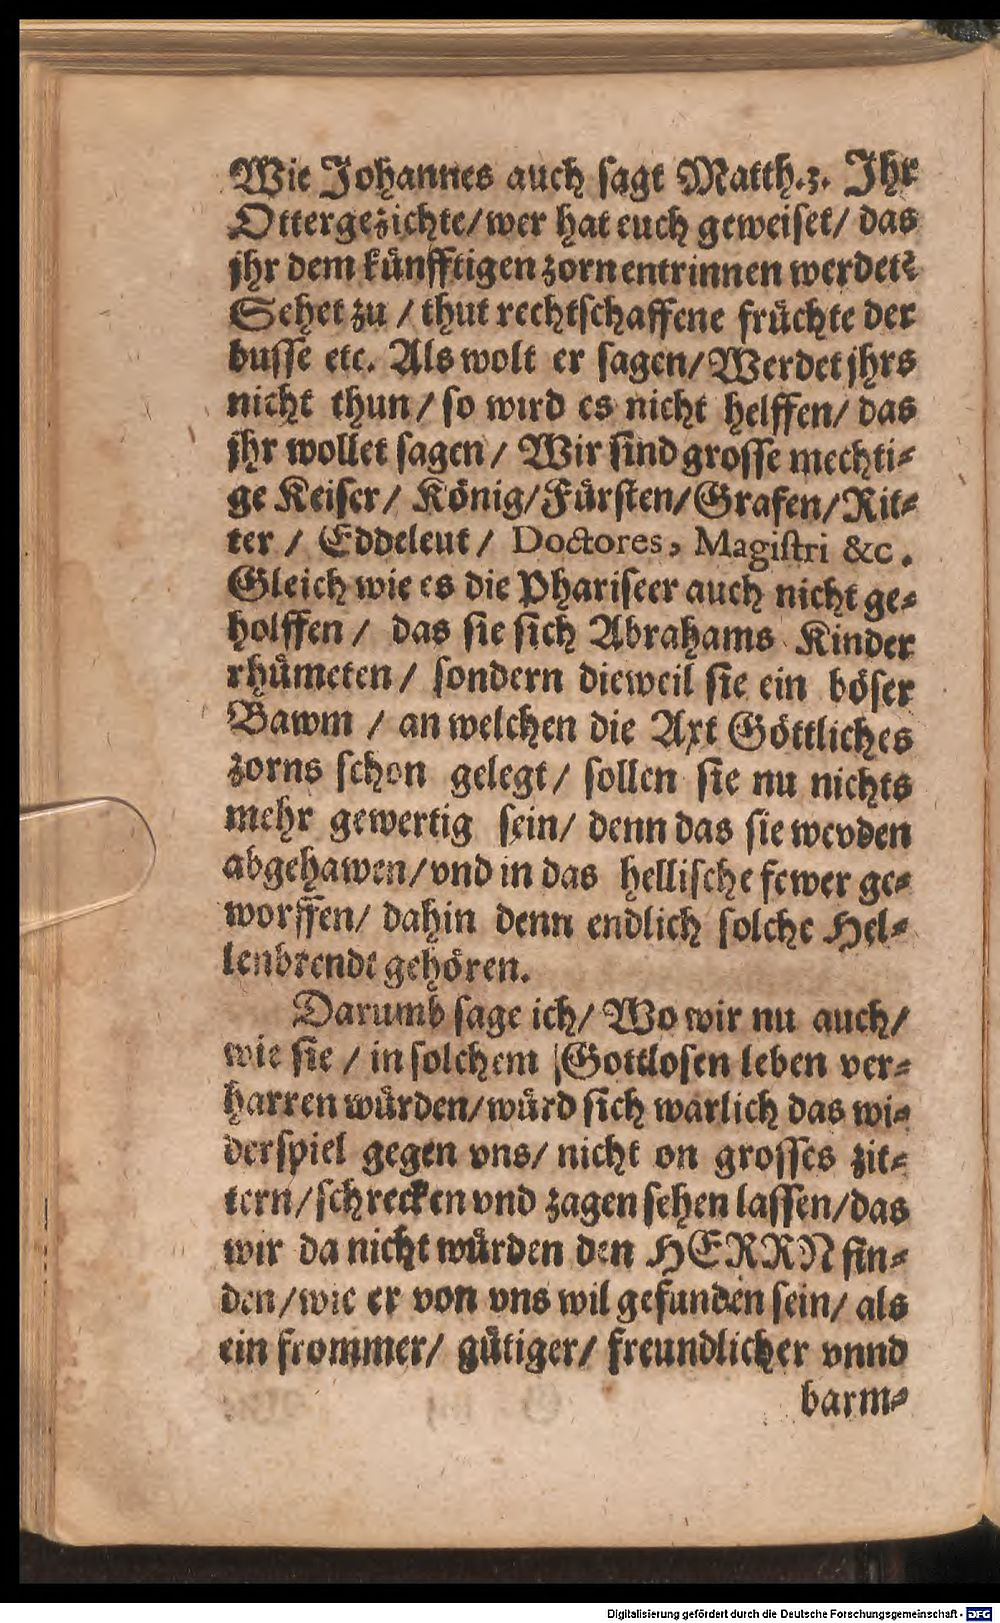 Wie Johannes auch sagt Matth.3. Ihr
Ottergezichte/wer hat euch geweiset/ das
jhr dem künfftigen zorn entrinnen werdet?
Sehet zu / thut rechtschaffene früchte der
busse etc. Als wolt er sagen/Werdet jhrs
nicht thun/ so wird es nicht helffen/ das
jhr wollet sagen/ Wir sind grosse mechti-
ge Keiser/ König/Fürsten/Grafen/Rit-
ter / Eddeleut/ Doctores, Magistri &c.
Gleich wie es die Phariseer auch nicht ge-
holffen/ das sie sich Abrahams Kinder
rhümeten/ sondern dieweil sie ein böser
Bawm / an welchen die Axt Göttliches
zorns schon gelegt/ sollen sie nu nichts
mehr gewertig sein/ denn das sie wevden
abgehawen/vnd in das hellische fewer ge-
worffen/ dahin denn endlich solche Hel-
lenbrendt gehören.
Darumb sage ich/ Wo wir nu auch/
wie sie / in solchem Gottlosen leben ver-
harren würden/würd sich warlich das wi-
derspiel gegen vns/ nicht on grosses zit-
tern/schrecken vnd zagen sehen lassen/das
wir da nicht würden den HERRN fin-
den/wie er von vns wil gefunden sein/ als
ein frommer/ gütiger/ freundlicher vnnd
barm-
Digitalisierung gefördert durch die Deutsche Forschungsgemeinschaft - DFG